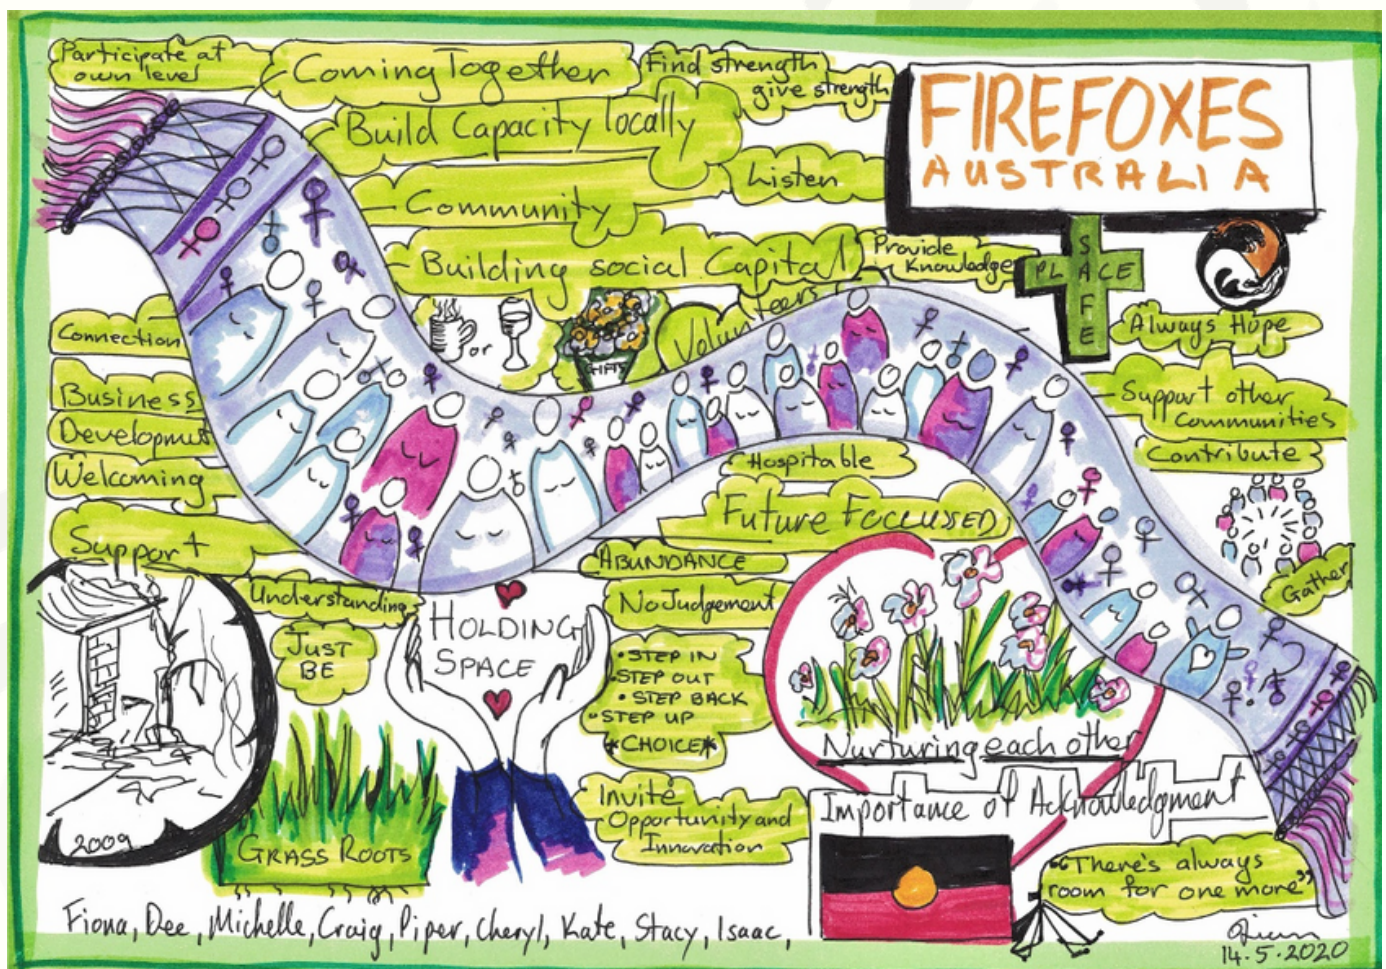 Participate at
own level
Coming Together
Find strength
give strength
FIREFOXES
AUSTRALIA
Build Capacity locally
Listen
Community
Building social Capital
Provide
Knowledge
PLACE
SAFE
Always Hope
Connection
or
GIFTS
Volunteers
Support other
Communities
Contribute
Business
Development
Welcoming
Hospitable
Support
Future FOCCUSSED
ABUNDANCE
Gather
Understanding
HOLDING
SPACE
No Judgement
JUST
BE
• STEP IN
• STEP OUT
• STEP BACK
• STEP UP
*CHOICE*
Nurturing each other
Invite
Opportunity and
Innovation
Importance of Acknowledgment
2009
GRASS ROOTS
"There's always
room for one more"
Fiona, Dee, Michelle, Craig, Piper, Cheryl, Kate, Stacy, Isaac,
14.5.2020